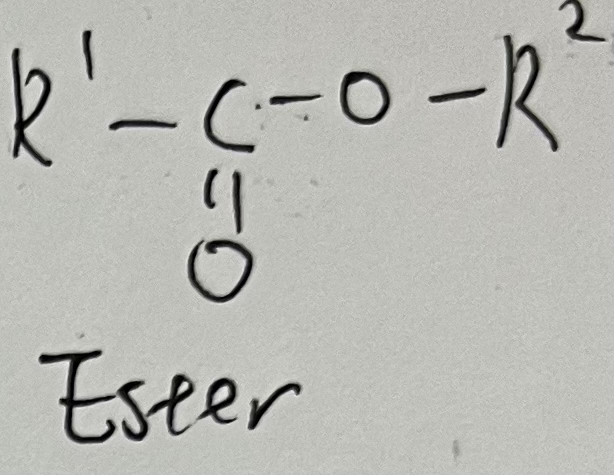 R¹－C－O－R²
||
O
Ester